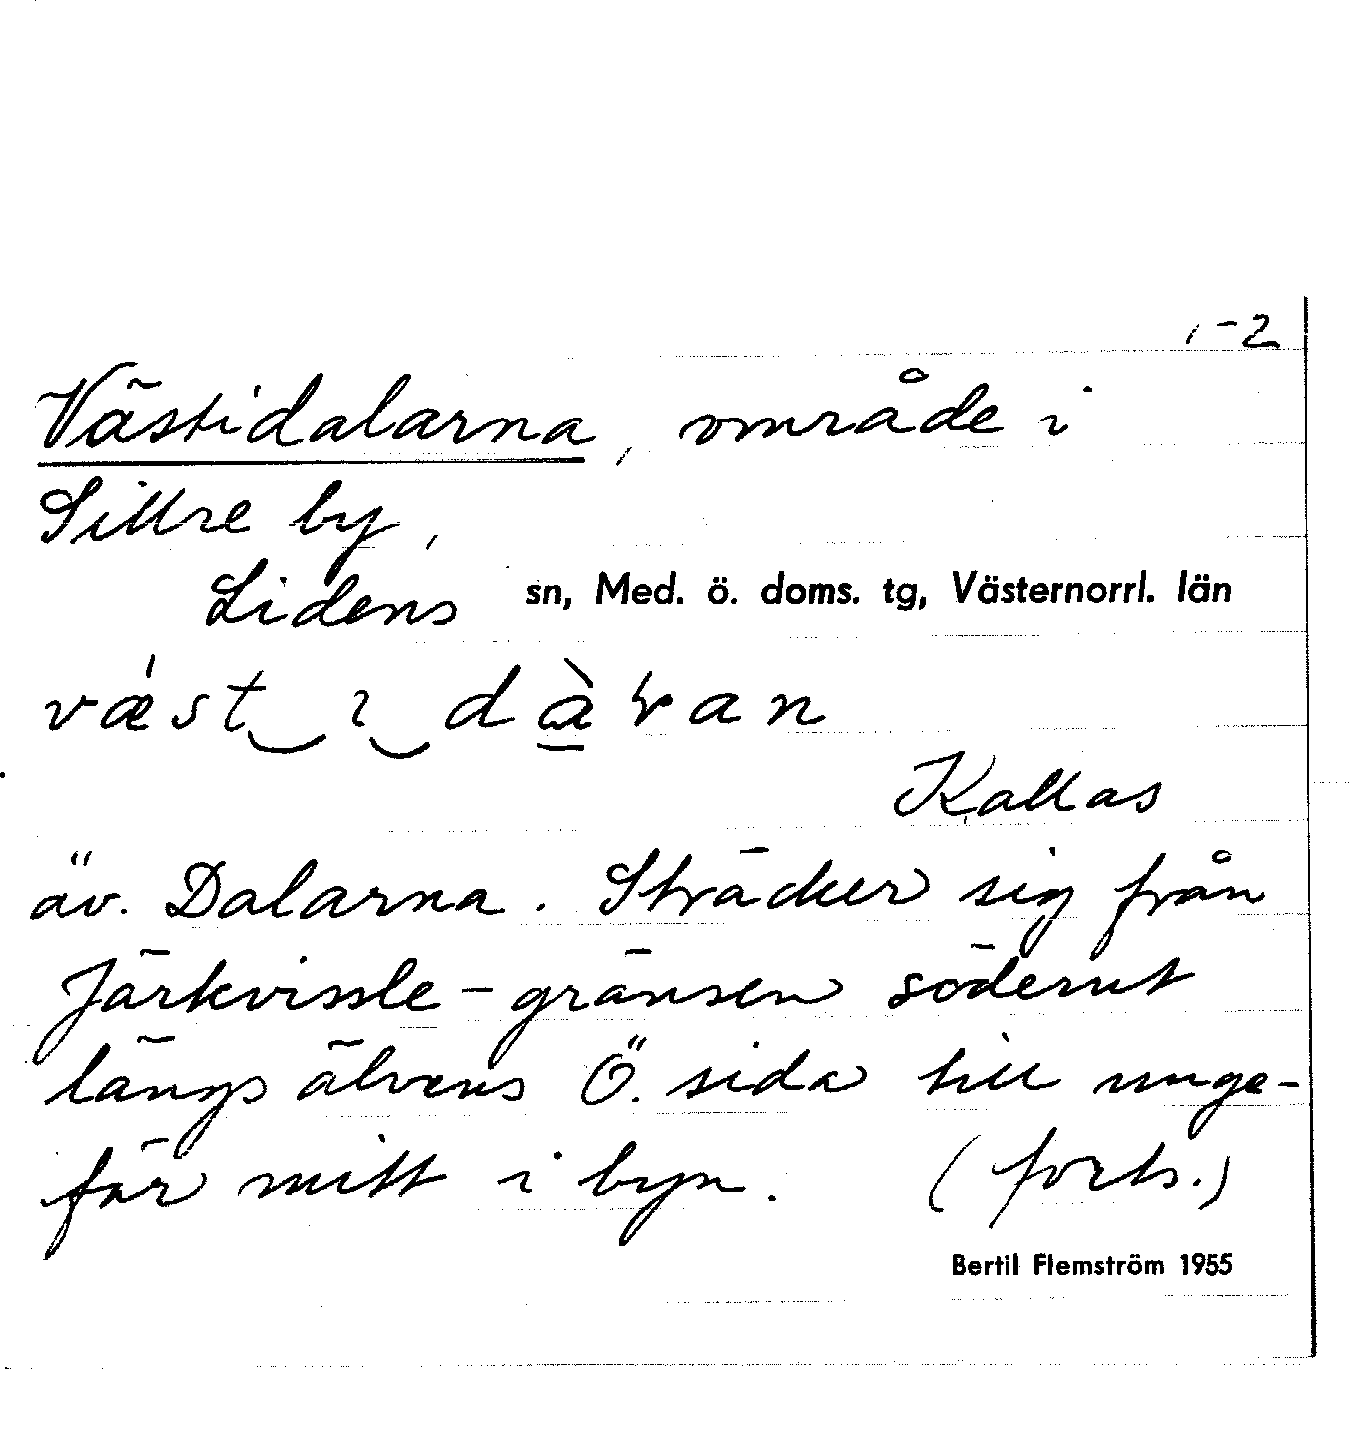 1-2
Västidalarna, område i
Sillre by,
Lidens sn, Med. ö. doms. tg, Västernorrl. län
Kallas
äv. Dalarna. Sträcker sig från
Järkvissle-gränsen söderut
längs älvens Ö. sida till unge-
fär mitt i byn. (forts.)
Bertil Flemström 1955